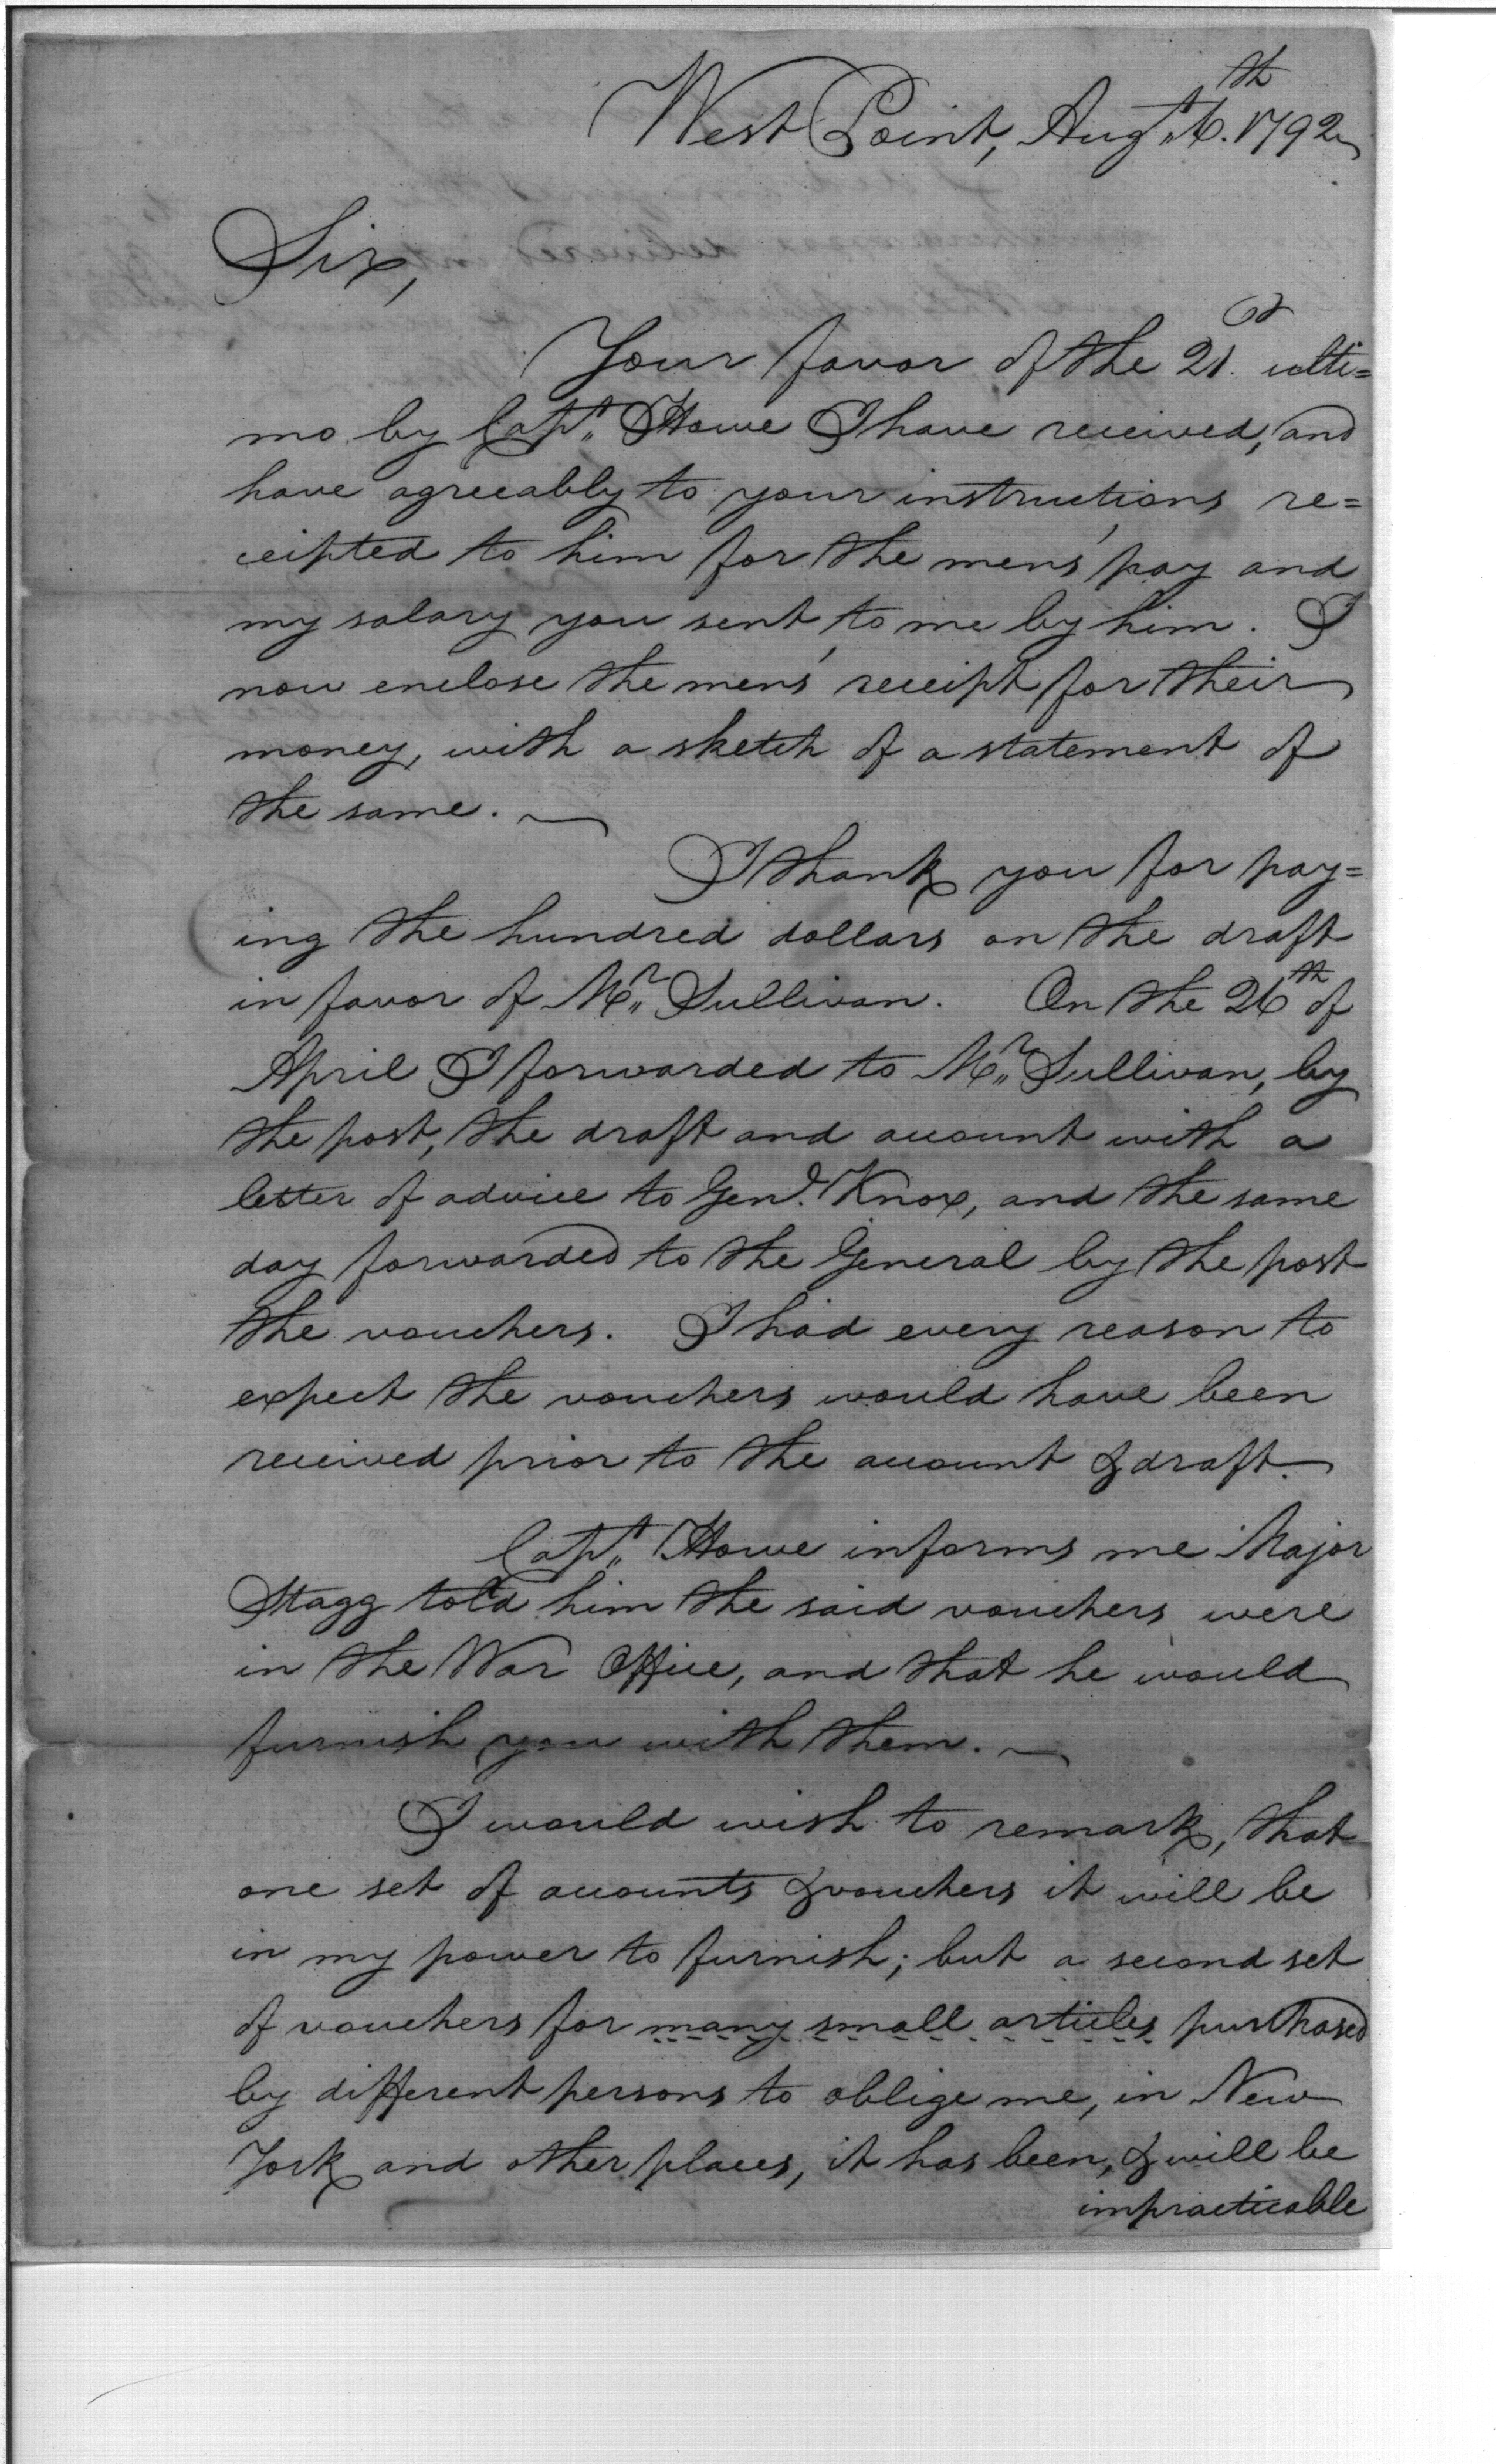 West Point, Augt. 6th. 1792
Sir,
Your favor of the 21. ulti=
mo by Capt. Howe I have received, and
have agreeably to your instructions re=
ceipted to him for the mens' pay and
my salary you sent to me by him. I
now enclose the mens' receipt for their
money, with a sketch of a statement of
the same.
I thank you for pay=
ing the hundred dollars on the draft
in favor of Mr. Sullivan. On the 26th of
April I forwarded to Mr. Sullivan, by
the post, the draft and account with a
letter of advice to Genl. Knox, and the same
day forwarded to the General by the post
the vouchers. I had every reason to
expect the vouchers would have been
received prior to the account & draft.
Capt. Howe informs me Major
Stagg told him the said vouchers were
in the War Office, and that he would
furnish you with them.
I would wish to remark, that
one set of accounts & vouchers it will be
in my power to furnish; but a second set
of vouchers for many small articles purchased
by different persons to oblige me, in New
York and other places, it has been, & will be
impracticable